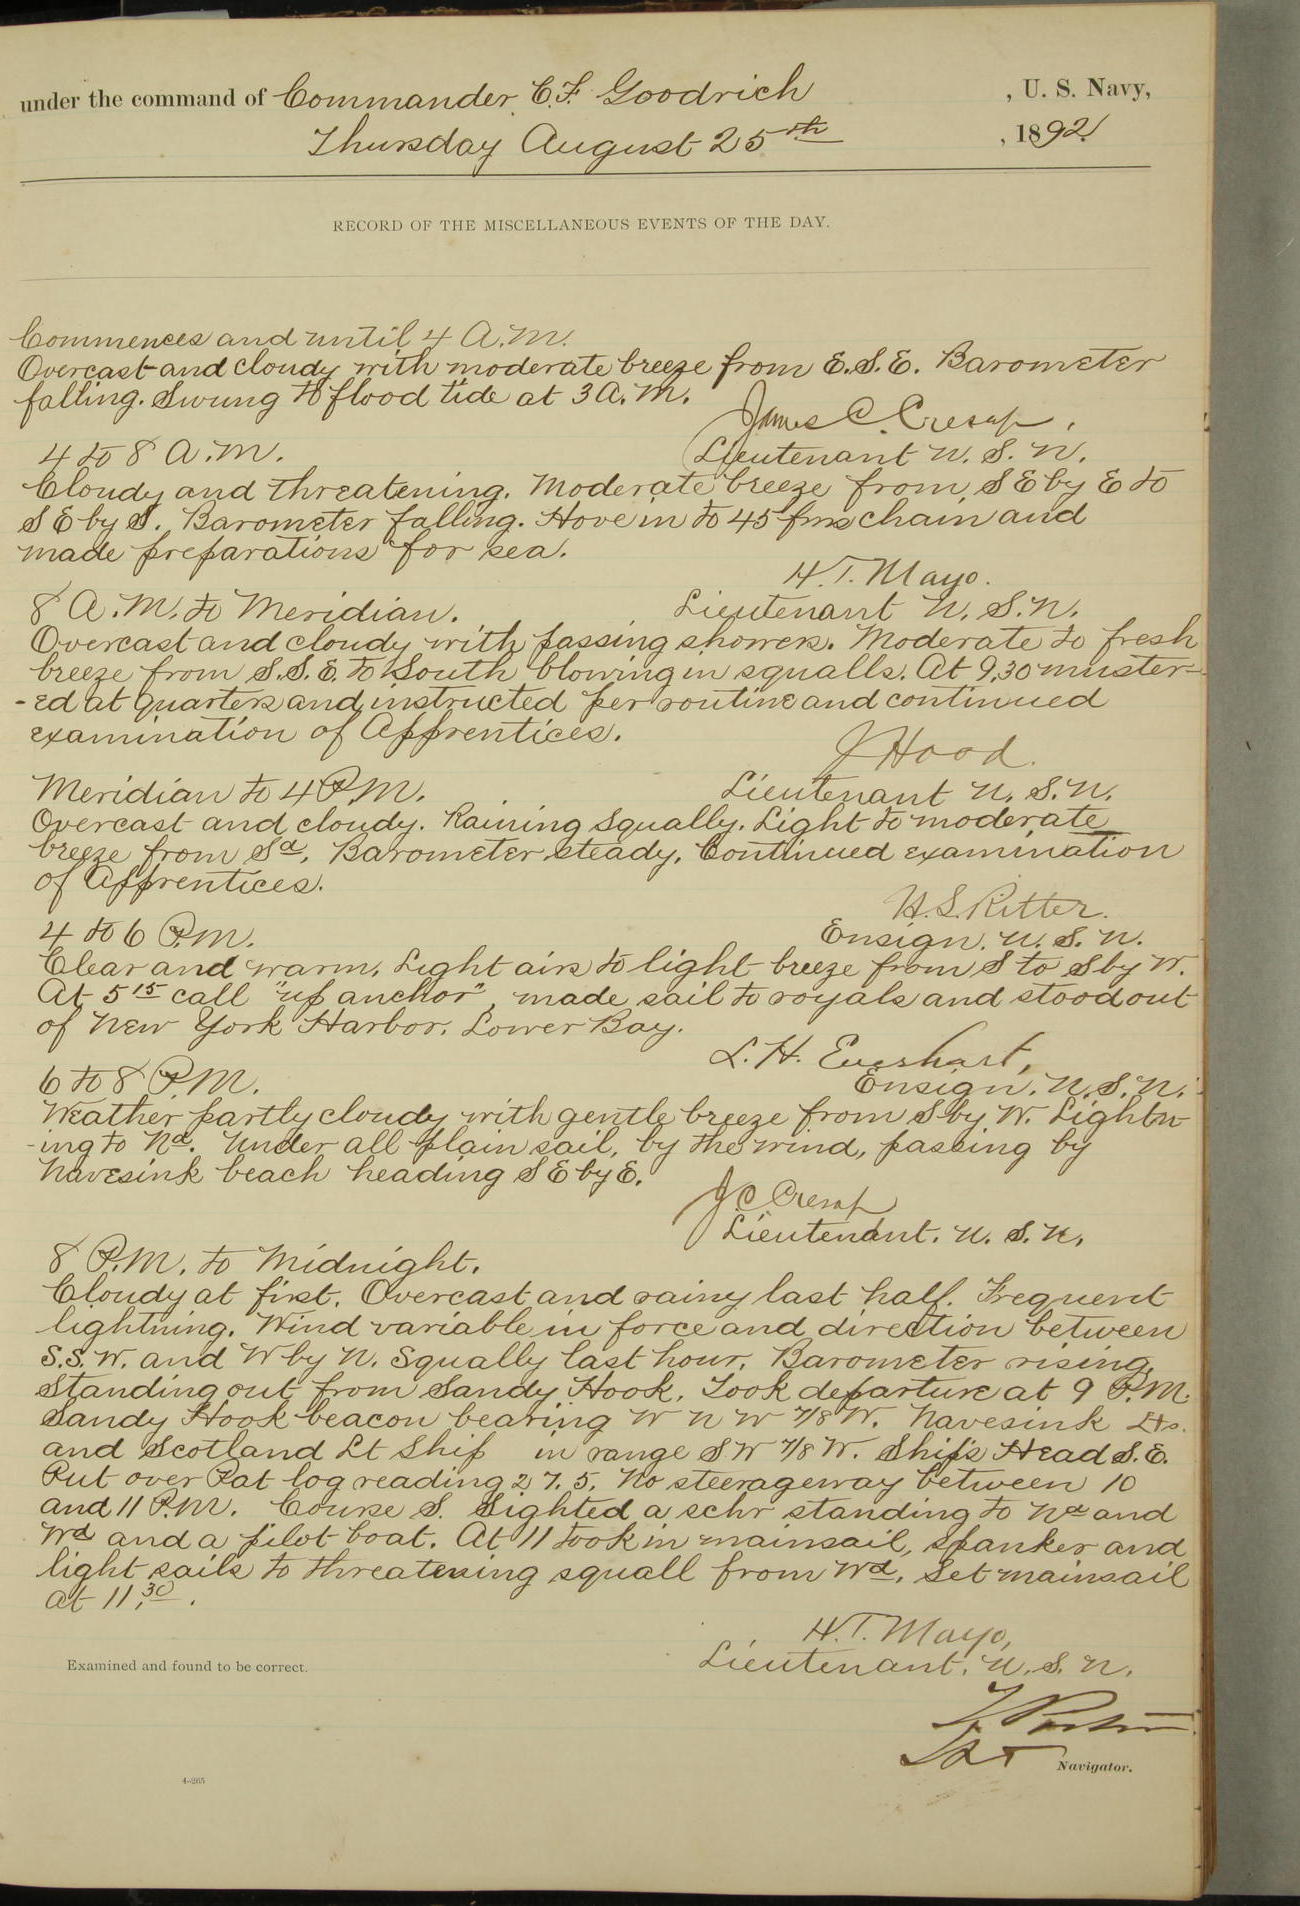 under the command of Commander C. F. Goodrich , U. S. Navy,
Thursday August 25th , 1892
RECORD OF THE MISCELLANEOUS EVENTS OF THE DAY.
Commences and until 4 A.M.
Overcast and cloudy with moderate breeze from E.S.E. Barometer
falling. Swung to flood tide at 3 A.M.
James C. Cresap,
4 to 8 A.M.
Lieutenant U. S. N.
Cloudy and threatening. Moderate breeze from S E by E to
S E by S. Barometer falling. Hove in to 45 fms chain and
made preparations for sea.
H. T. Mayo.
8 A.M. to Meridian.
Lieutenant U. S. N.
Overcast and cloudy with passing showers. Moderate to fresh
breeze from S.S.E. to South blowing in squalls. At 9,30 muster-
-ed at quarters and instructed per routine and continued
examination of Apprentices.
J Hood.
Meridian to 4 P.M.
Lieutenant U. S. N.
Overcast and cloudy. Raining Squally. Light to moderate
breeze from Sd. Barometer steady. Continued examination
of Apprentices.
H. S. Ritter.
4 to 6 P.M.
Ensign. U. S. N.
Clear and warm. Light airs to light breeze from S to S by W.
At 5 15 call "up anchor", made sail to royals and stood out
of New York Harbor, Lower Bay.
L. H. Everhart,
6 to 8 P.M.
Ensign. U. S. N.
Weather partly cloudy with gentle breeze from S by W. Lightn-
-ing to Nd. Under all plain sail, by the wind, passing by
Navesink beach heading S E by E.
J C Cresap
Lieutenant. U. S. N.
8 P.M. to Midnight.
Cloudy at first. Overcast and rainy last half. Frequent
lightning. Wind variable in force and direction between
S.S.W. and W by N. Squally last hour. Barometer rising.
Standing out from Sandy Hook. Took departure at 9 P.M.
Sandy Hook beacon bearing W N W 7/8 W. Navesink Lts.
and Scotland Lt Ship in range S W 7/8 W. Ship's Head S. E.
Put over Pat log reading 27.5. No steerageway between 10
and 11 P.M. Course S. Sighted a schr standing to Nd and
Wd and a pilot boat. At 11 took in mainsail, spanker and
light sails to threatening squall from Wd. Set mainsail
at 11,30.
H. T. Mayo,
Examined and found to be correct.
Lieutenant. U. S. N.
Navigator.
4-265